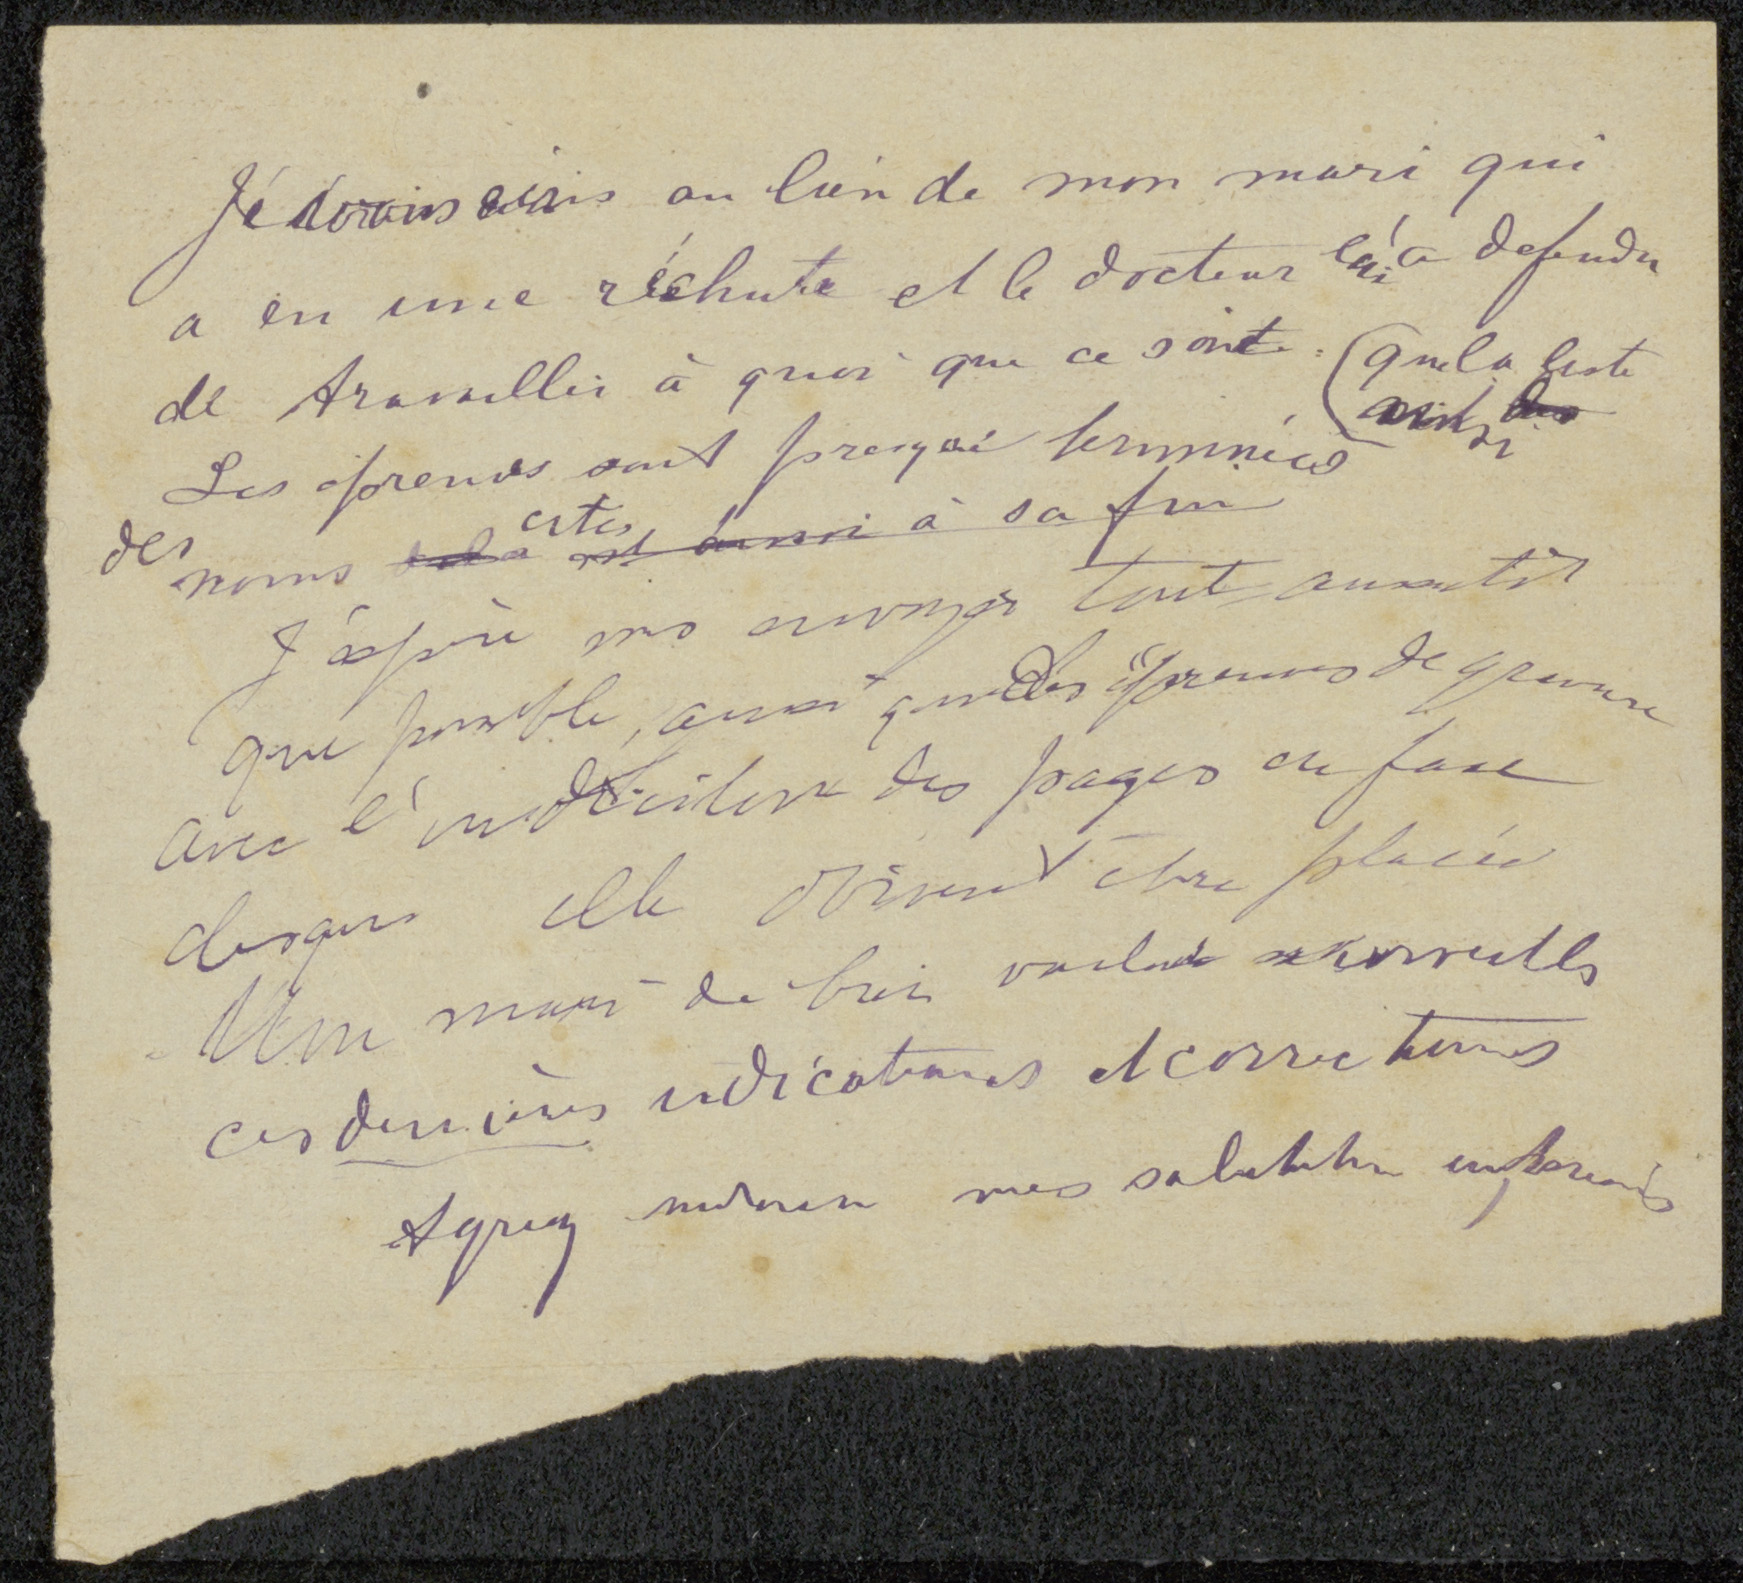 Je vous écris au lieu de mon mari qui
a eu une réchute et le docteur lui a defendu
de travailler à quoi que ce soit. (que la liste
ainsi
Les épreuves sont presque terminées
des noms cités est aussi à sa fin
J'éspère vous envoyer tout aussitôt
que possible, aussi que les épreuves de gravure
avec l'indication des pages en face
desquels elle doivent être placées
Mon mari de bien vouloir
ces dernières indications et corrections
Agreez monsieur mes salutation empressés